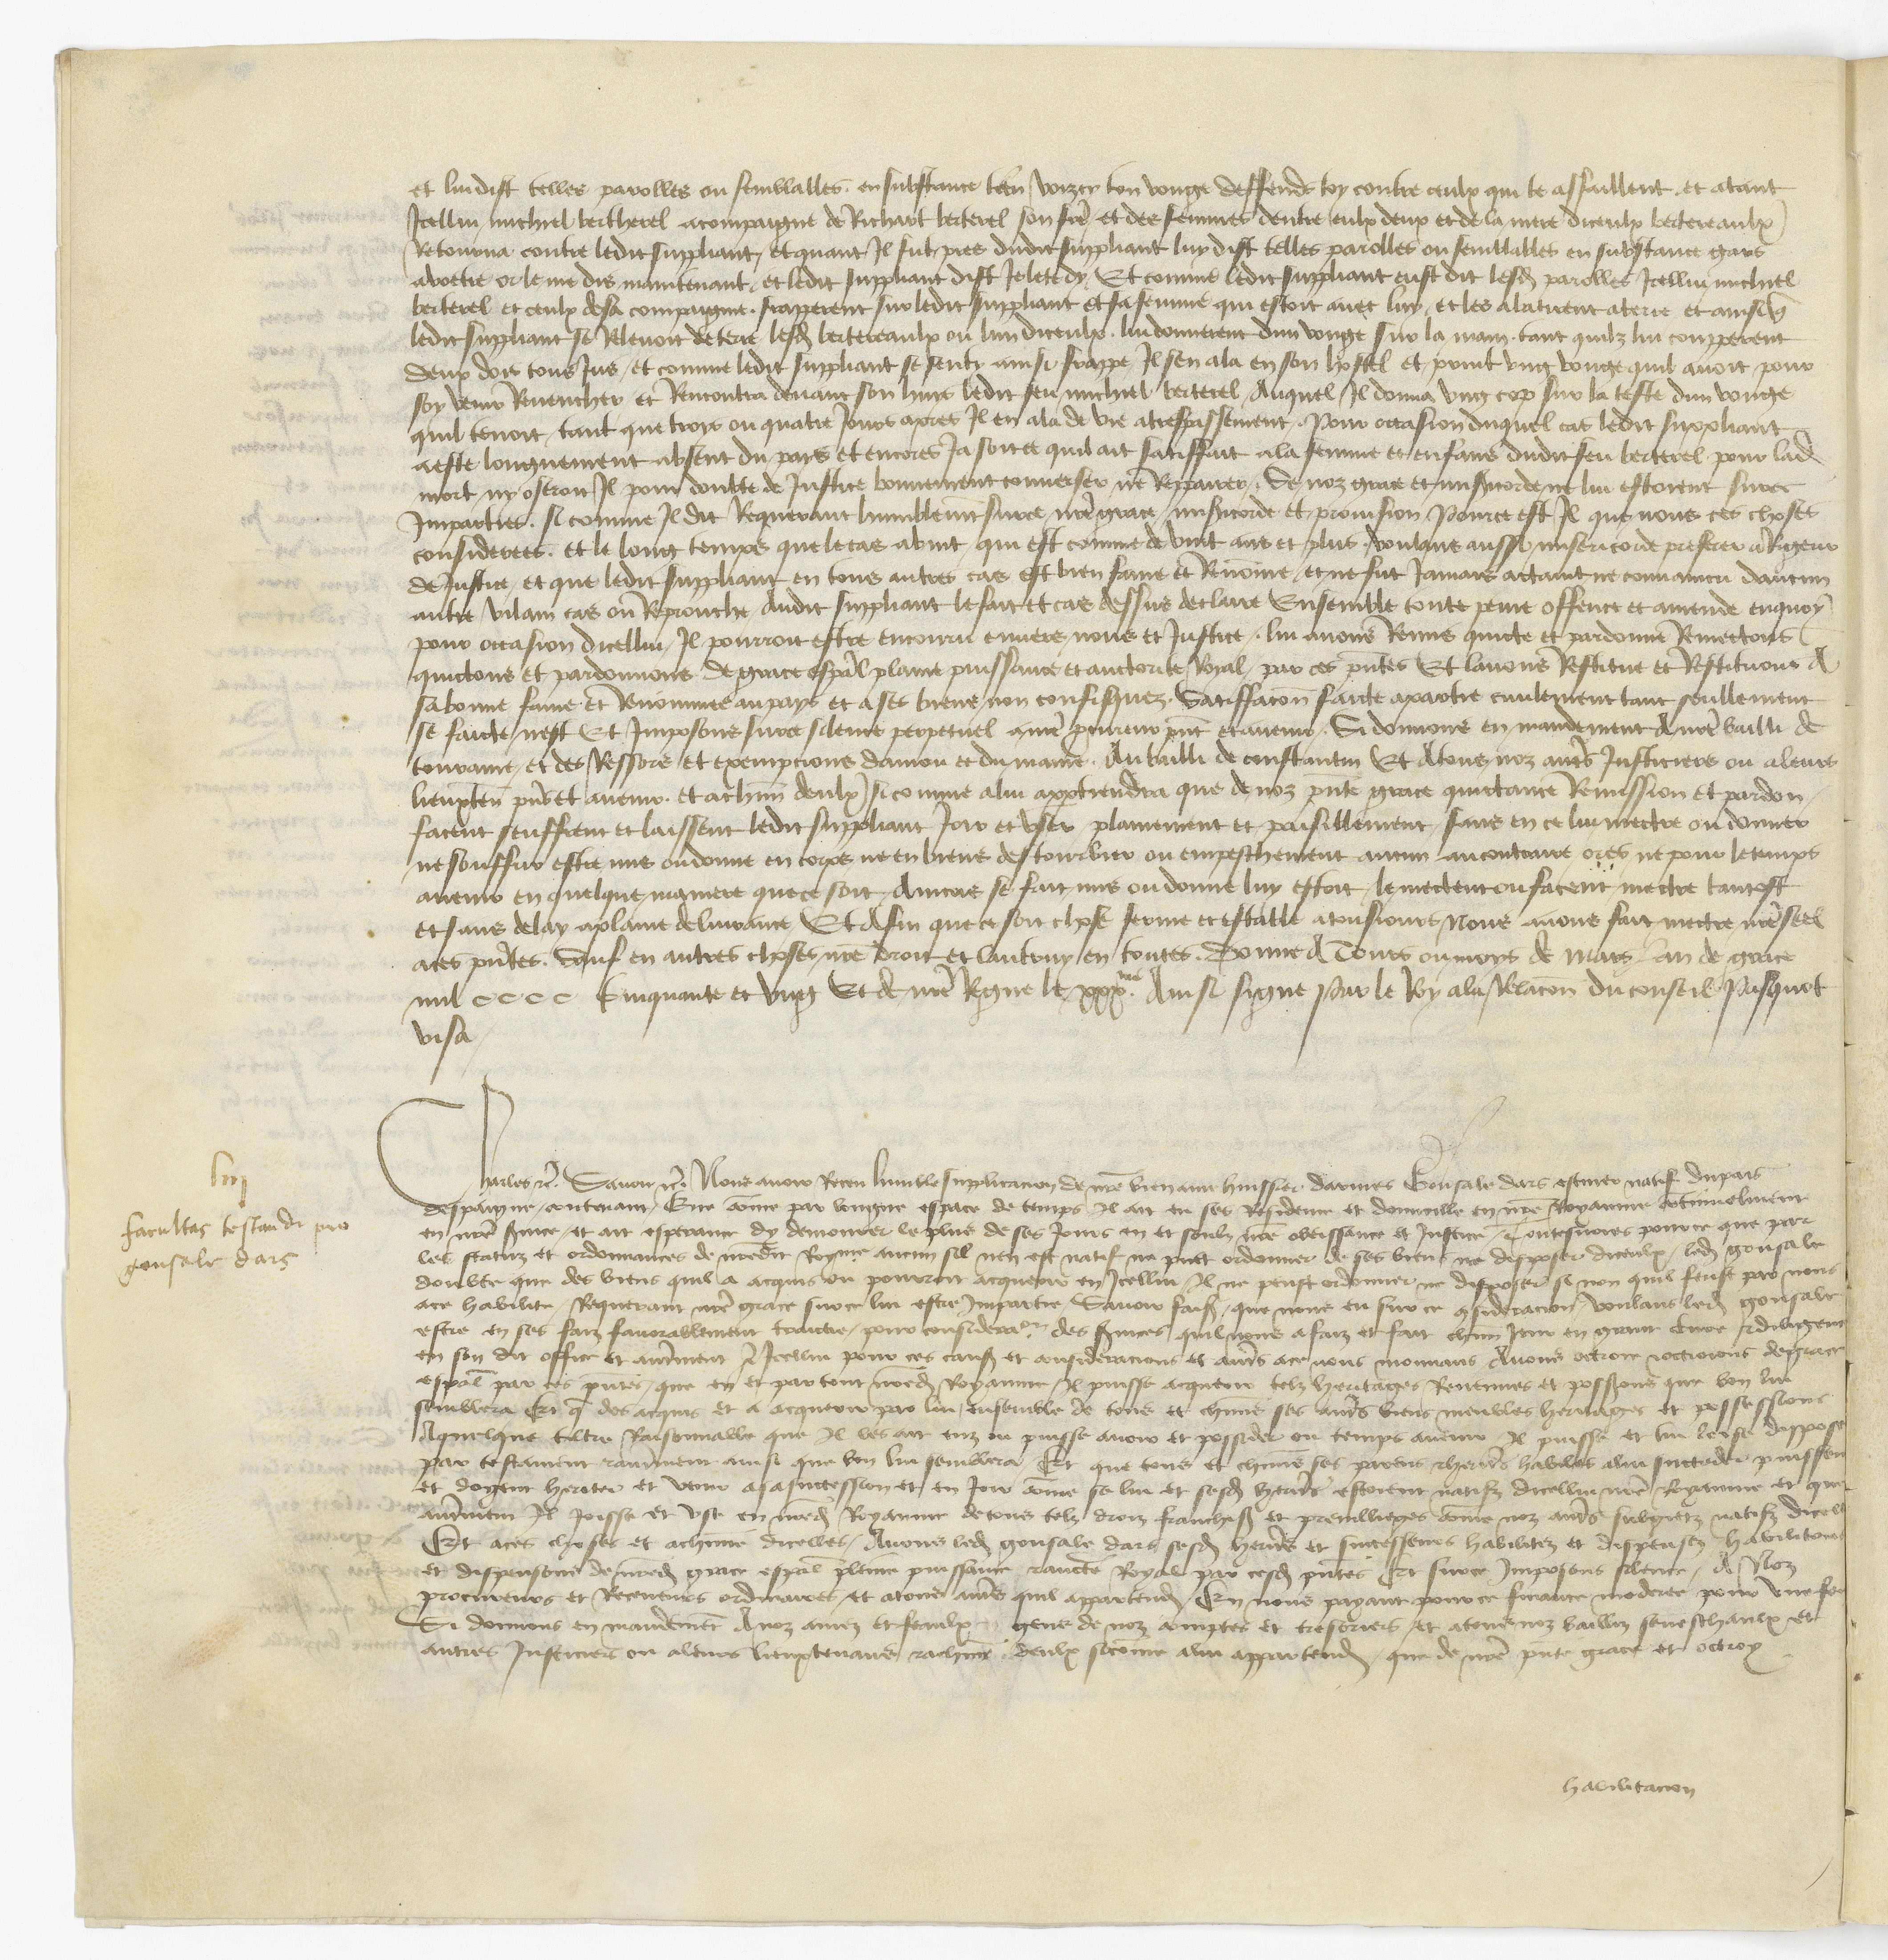 et lui dist telles parolles ou semblables en substance tien voizcy ton vouge deffends toy contre ceulx qui te assaillent et atant
Icellui michiel bertherel acompaigne de Richart berterel son frere et des femmes dentre eulx deux et de la mere diceulx bertereaulx
Retourna contre ledit suppliant et quant Il fut pres dudit suppliant luy dist telles parolles ou semblables en substance gars
avoetre or le me dis maintenant et ledit suppliant dist Je le te dy Et comme ledit suppliant eust dit lesd parolles Icellui michiel
berterel et ceulx de sa compaignie fraperent sur ledit suppliant et sa femme qui estoit avec luy et les abatirent a terre et ainsi q
ledit suppliant se Relevoit de terre lesd bertereaulx ou lun diceulx lui donnerent dun vouge sur la main tant quilz lui coupperent
deux doiz tous jus et comme ledit suppliant se senty ainsi frappe Il sen ala en son hostel et print ung vouge quil avoit pour
soy venir Revencher et Rencontra devant son huis ledit feu michiel berterel Auquel Il donna ung cop sur la teste dun vouge
quil tenoit tant que trois ou quatre jours apres Il en ala de vie a trespassement Pour occasion duquel cas ledit suppliant
a este longuement absent du pais et encores Ja soit ce quil ait satiffait a la femme et enfans dudit feu berterel pour lad
mort ny oseroit Il pour doubte de Justice bonnement converser ne Repairer Se noz grace et misericorde ne lui estoient surce
Imparties si comme Il dit Requerant humblement surce nre grace misericorde et provision Pource est Il que nous ces choses
considerees et le long temps que le cas advint qui est comme de vint ans et plus voulans aussi misericorde preferer a Rigueur
de Justice et que ledit suppliant en tous autres cas est bien fame et Renomme et ne fut Jamais actaint ne convaincu daucun
autre vilain cas ou Reprouche Audit suppliant le fait et cas dessus declaire Ensemble toute peine offence et amende enquoy
pour occasion dicellui Il pourroit estre encouru envers nous et Justice lui avons Remis quicte et pardonne Remectons
quictons et pardonnons de grace espal plaine puissance et auctorite Royal par ces pntes Et lavons Restitue et Restituons A
sa bonne fame et Renommee au pays et a ses biens non confisquez Satiffacon faicte a partie civilement tant seullement
se faicte nest Et Imposons surce silence perpetuel a nre procureur pnt et avenir Si donnons en mandement A nre bailli de
touraine et des Ressors et exempcions danjou et du maine Au bailli de constantin Et A tous noz autres Justiciers ou a leurs
lieuxten pns et avenir et a chun deulx si comme a lui appartiendra que de noz pnte grace quictance Remission et pardon
facent seuffrent et laissent ledit suppliant Joir et user plainement et paisiblement sans en ce lui mectre ou donner
ne souffrir estre mis ou donne en corps ne en biens destourbier ou empeschement aucun au contraire ores ne pour le temps
avenir en quelque maniere que ce soit Aincois se fait mis ou donne luy estoit le mectent ou facent mectre tantost
et sans delay a plaine delivrance Et Afin que ce soit chose ferme et estable a tousiours Nous avons fait mectre nre seel
a ces pntes Sauf en autres choses nre droit et lautruy en toutes Donne A Tours ou moys de mars lan de grace
mil CCCC Cinquante et ung Et de nre Regne le xxxme Ainsi signe Par le Roy a la Relacon du conseil Pasquot
visa
lvij
facultas testandi pro
gonsale dars
Charles etc Savoir etc Nous avoir Receu lumble supplicacion de nre bien ame huissier darmes Gonsale dars escuier natif du pais
despaigne contenant Que comme par longue espace de temps Il ait eu ses Residence et domicille en nre Royaume continuelment
en nre service et ait esperance dy demourer le plus de ses jours en et soubz nre obeissance et Justice Toutesvoies pource que par
les statuz et ordonnances de nredit Royme aucun sil nen est natif ne puet ordonner de ses biens ne disposer diceulx led gonsale
doubte que des biens quil a acquis ou pourroit acquerir en Icellui Il ne peust ordonner ne disposer si non quil feust par nous
ace habilite Requerant nre grace surce lui estre Impartie Savoir fais que nous eu surce consideracion voulans led gonsale
estre en ses faiz favorablement traictie pour consideraon des services quil nous a faiz et fait chun jour en grant cure et diligence
en son dit office et autrement A Icellui pour ces causes et consideracions et autres ace nous mouvans Avons octroie et octroions de grace
espal par ces pntes que en et par tout nred Royaume Il puisse acquerir telz heritages Revenues et possessions que bon lui
semblera Et q des acquis et a acquerir par lui ensemble de tous et chuns ses autres biens meubles heritages et possessions
A quelque tiltre Raisonnable que Il les ait euz ou puisse avoir et posseder ou temps avenir Il puisse et lui loise disposer
par testament et autrement ainsi que bon lui semblera Et que tous et chuns ses parens et heritiers habiles a lui succeder puissent
et doyent heriter et venir a sa succession et en joir comme se lui et sesd heritiers estoient natifz dicellui nre Royaume et que
autrement Il joisse et use en nred Royaume de tous telz droiz franchises et previlleges comme noz autres subgietz natifz dicellui
Et aces choses et a chune dicelles Avons led gonsale dars sesd heritiers et successeurs habilitez et dispensez habilitons
et dispensons de nred grace espal plaine puissance et aucte Royal par cesd pntes Et surce Imposons silence A Noz
procureurs et Receveurs ordinaires et a tous autres quil appartendra En nous payant pource finance moderee pour une fois
Si donnons en mandement A noz amez et feaulx gens de noz comptes et tresoriers et a tous noz bailliz seneschaulx et
autres Justiciers ou a leurs lieuxtenans et a chun deulx si comme a lui appartendra que de nre pnte grace et octroy
habilitacion